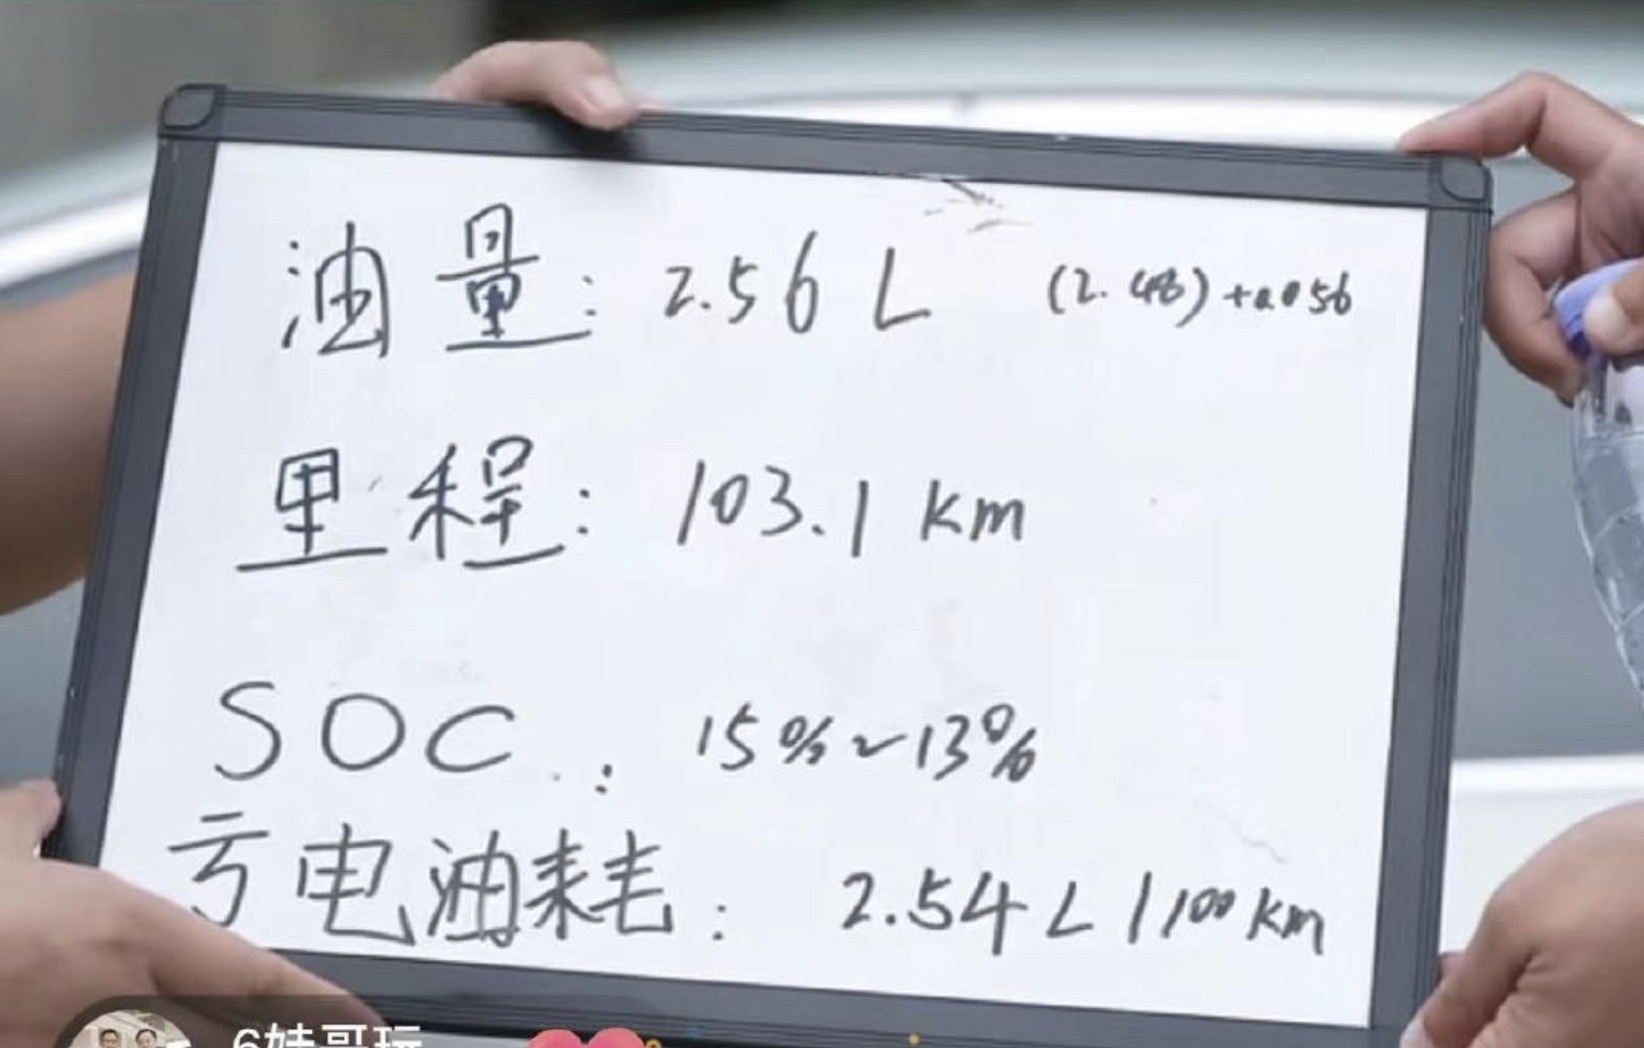 油量: 2.56 L (2.48)+0.056
里程: 103.1 km
SOC: 15%~13%
亏电油耗: 2.54L/100km
6娃哥玩